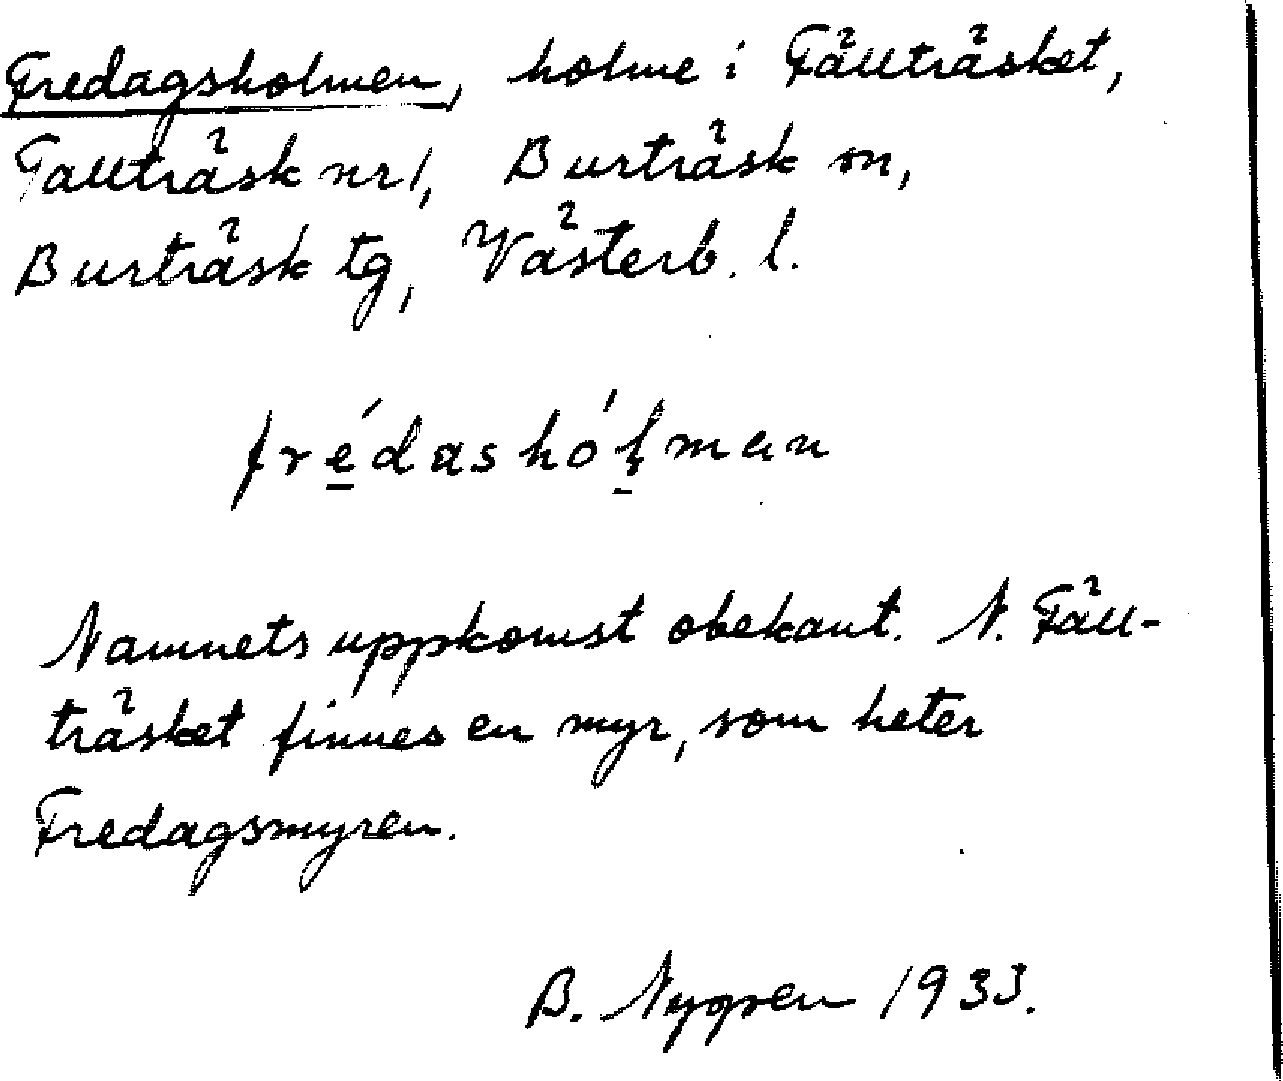 Fredagsholmen, holme i Fällträsket,
Tallträsk nr 1, Burträsk sn,
Burträsk tg, Västerb. l.
frédashólman
Namnets uppkomst obekant. N. Fäll-
träsket finnes en myr, som heter
Fredagsmyren.
B. Nygren 1933.